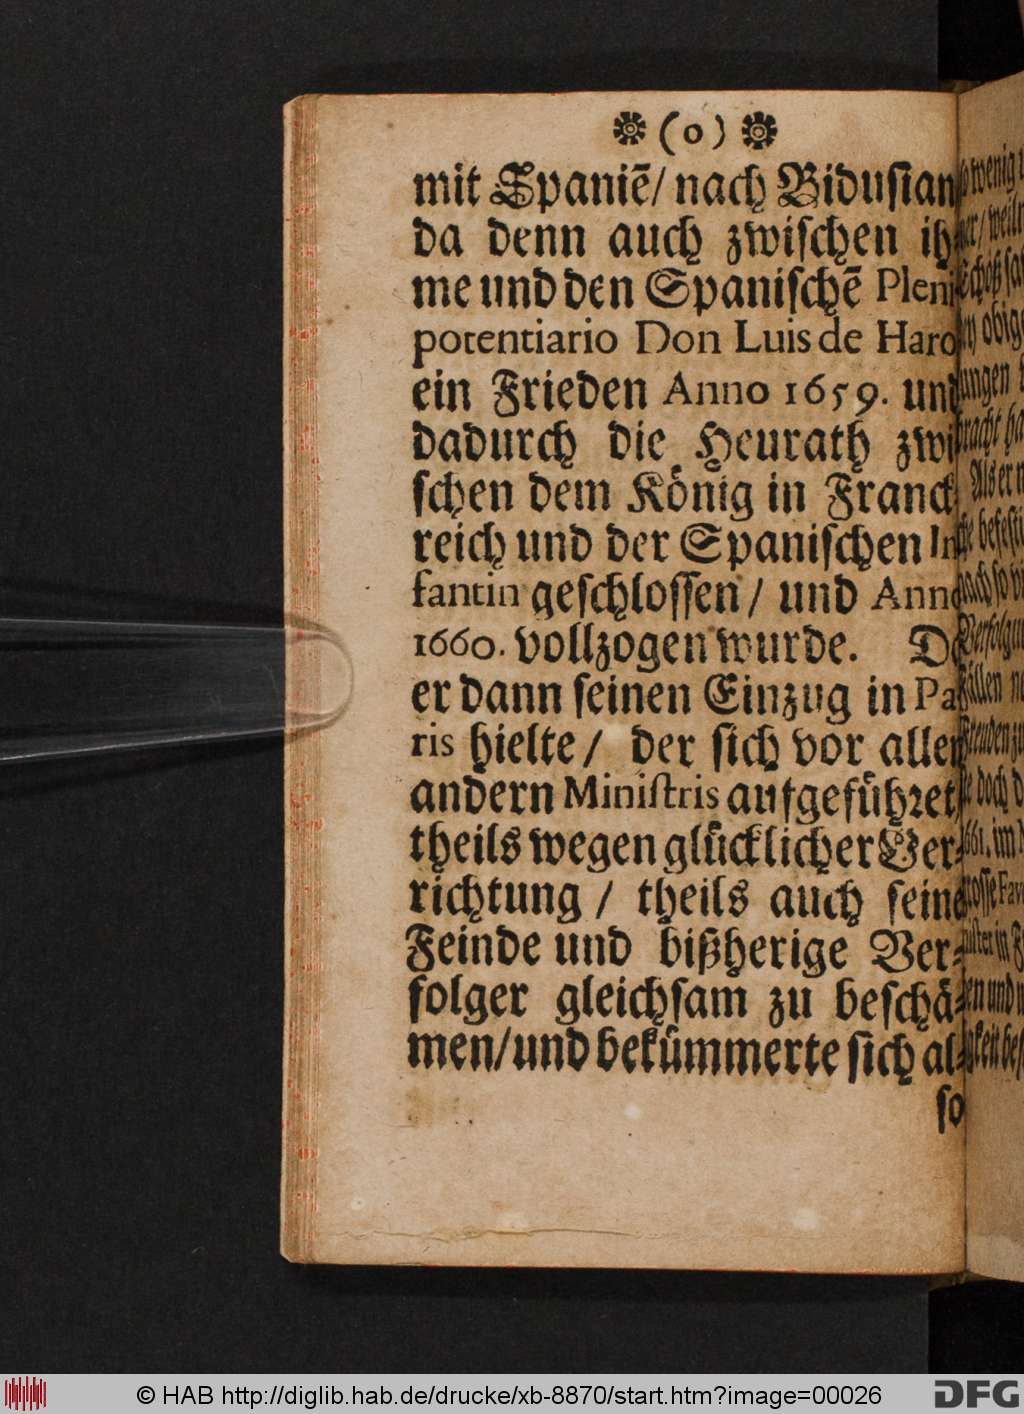 ❋ (0) ❋
mit Spaniẽ/ nach Bidusian
da denn auch zwischen ih
me und den Spanischẽ Pleni
potentiario Don Luis de Haro
ein Frieden Anno 1659. und
dadurch die Heurath zwi
schen dem König in Franck
reich und der Spanischen In
fantin geschlossen/ und Anno
1660. vollzogen wurde. Da
er dann seinen Einzug in Pa
ris hielte/ der sich vor allen
andern Ministris aufgeführet/
theils wegen glücklicher Ver-
richtung/ theils auch seine
Feinde und bißherige Ver-
folger gleichsam zu beschä-
men/und bekümmerte sich al-
so
wenig
obig
© HAB http://diglib.hab.de/drucke/xb-8870/start.htm?image=00026
DFG